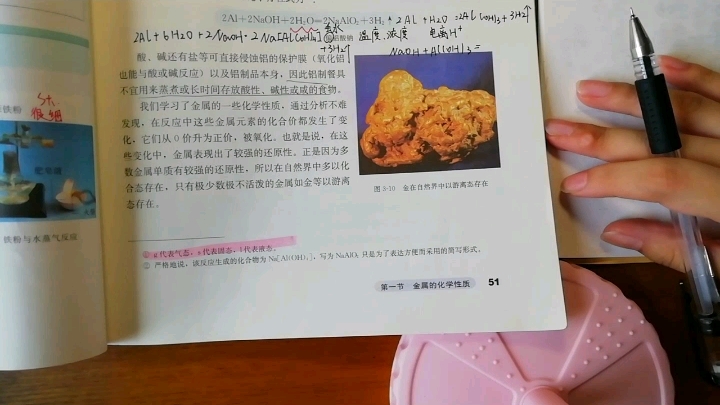 2Al+2NaOH+2H₂O=2NaAlO₂+3H₂↑
2Al+H₂O=2Al(OH)₃+3H₂↑
2Al+6H₂O+2NaOH·2Na[Al(OH)₄]
+3H₂↑
偏铝酸钠
温度、浓度
电离H⁺
NaOH+Al(OH)₃=
酸、碱还有盐等可直接侵蚀铝的保护膜（氧化铝
也能与酸或碱反应）以及铝制品本身，因此铝制餐具
不宜用来蒸煮或长时间存放酸性、碱性或咸的食物。
我们学习了金属的一些化学性质，通过分析不难
发现，在反应中这些金属元素的化合价都发生了变
化，它们从0价升为正价，被氧化。也就是说，在这
些变化中，金属表现出了较强的还原性。正是因为多
数金属单质有较强的还原性，所以在自然界中多以化
合态存在，只有极少数极不活泼的金属如金等以游离
态存在。
图 3-10 金在自然界中以游离态存在
铁粉
很细
铁粉与水蒸气反应
① g代表气态，s代表固态，l代表液态。
② 严格地说，该反应生成的化合物为Na[Al(OH)₄]，写为NaAlO₂只是为了表达方便而采用的简写形式。
第一节 金属的化学性质 51